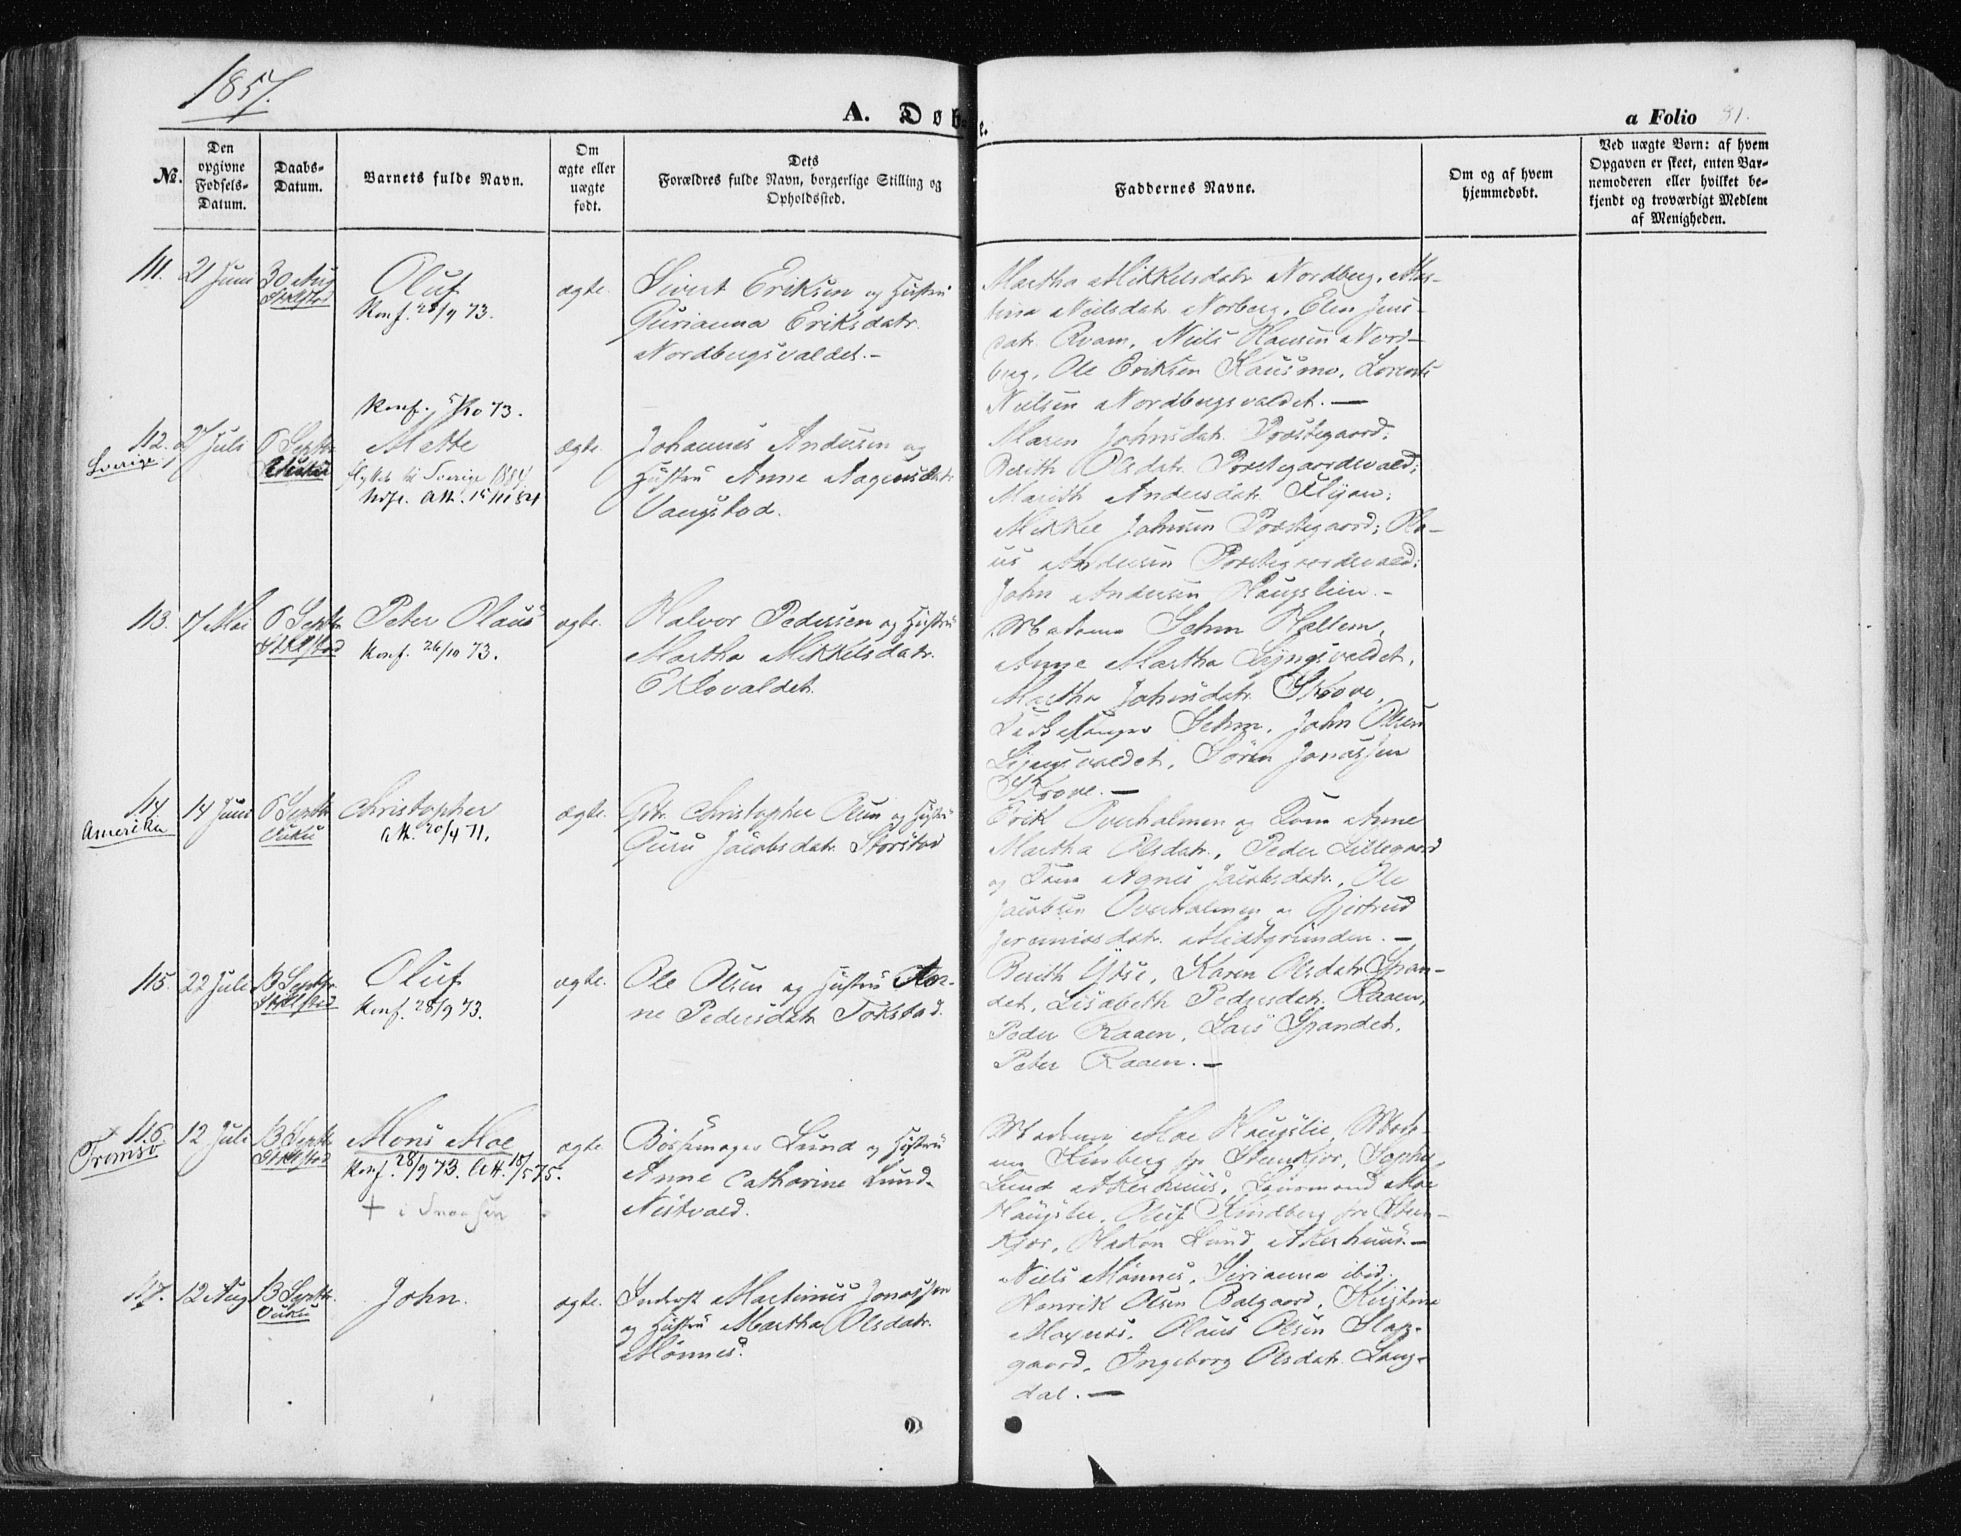 1857.
A. Døbte.
a Folio 81.
№.
Den opgivne Fødsels-Datum.
Daabs-Datum.
Barnets fulde Navn.
Om ægte eller uægte født.
Dets Forældres fulde Navn, borgerlige Stilling og Opholdssted.
Faddernes Navne.
Om og af hvem hjemmedøbt.
Ved uægte Børn: af hvem Opgaven er skeet, enten Barnemoderen eller hvilket bekjendt og troværdigt Medlem af Menigheden.
111. 21 Juni 30 Aug Stklstad
Oluf
Konf. 28/9 73.
ægte.
Sivert Eriksen og Hustru
Gurianna Eriksdatr.
Nordbergsvaldet. —
Martha Mikkelsdatr Nordberg, Mar-
tina Nielsdatr. Norberg, Elen Jens-
datr. Kvam, Niels Hansen Nord-
berg, Ole Eriksen Hausmo, Lorents
Nielsen Nordbergsvaldet. —
112. 27 Juli 6 Septbr.
Sverige
Konf. 5/10 73.
Mette
flyttet til Sverige 1884
Udfl. Att. 15/11 84
ægte.
Johannes Andersen og
Hustru Anne Aagensdatr
Vangstad.
Maren Johnsdatr. Præstegaard;
Berith Olsdatr. Præstegaardsvald;
Marith Andersdatr. Flyan;
Mikkel Johnsen Præstegaard; Ola-
us Andersen Præstegaardsvald;
John Andersen Haugslien. —
113. 17 Mai 6 Septbr. Stklstad
Peter Olaus
Konf. 26/10 73.
ægte.
Halvor Pedersen og Hustru
Martha Mikkelsdatr.
Eklovaldet.
Madame Sehm Hallem,
Anne Martha Lyngsvaldet,
Martha Johnsdatr. Skrove,
Sehm, John Olsen
Lyngsvaldet, Sören Jonassen
Skrove. —
114. 14 Juni 6 Septbr. Vuku
Amerika
Christopher
Att. 20/4 71.
ægte.
Gbr. Christopher Olsen og Hustru
Guru Jacobsdatr. Storstad
Erik Overholmen og Kone Anne
Martha Olsdatr., Peder Lillegaard
og Kone Agnes Jacobsdatr., Ole
Jacobsen Overholmen og Gjertrud
Jeremiasdatr. Midtgrunden. —
115. 22 Juli 13 Septbr. Stklstad
Oluf
Konf. 28/9 73.
ægte.
Ole Olsen og Hustru Kar-
ne Pedersdatr Tokstad.
Berith Ydse, Karen Olsdatr Gran-
det, Lisabeth Pedersdatr. Raaen,
Peder Raaen, Lars Grandet,
Peter Raaen. —
116. 12 Juli 13 Septbr. Stklstad
Tromsø
Mons Moe
Konf. 28/9 73. Att. 18/5 75.
+ i
ægte.
Bössemager Lund og Hustru
Anne Catharine Lund.
Nestvold.
Madame Moe Haugslie, Mad-
am Kinberg fra Stenkjær, Sophie
Lund Akerhuus, Moe
Haugslie, Oluf Kindberg fra Sten-
kjær, Hakon Lund Akerhuus. —
117. 12 Aug 13 Septbr. Vuku
John.
ægte.
Inderst Martinus Jonassen
og Hustru Martha Olsdatr.
Mönnes.
Niels Mönnes, Serianna ibid,
Henrik Olsen Balgaard, Kristine
Mönnes, Olaus Olsen Slap-
gaard, Ingeborg Olsdatr. Lang-
dal. —